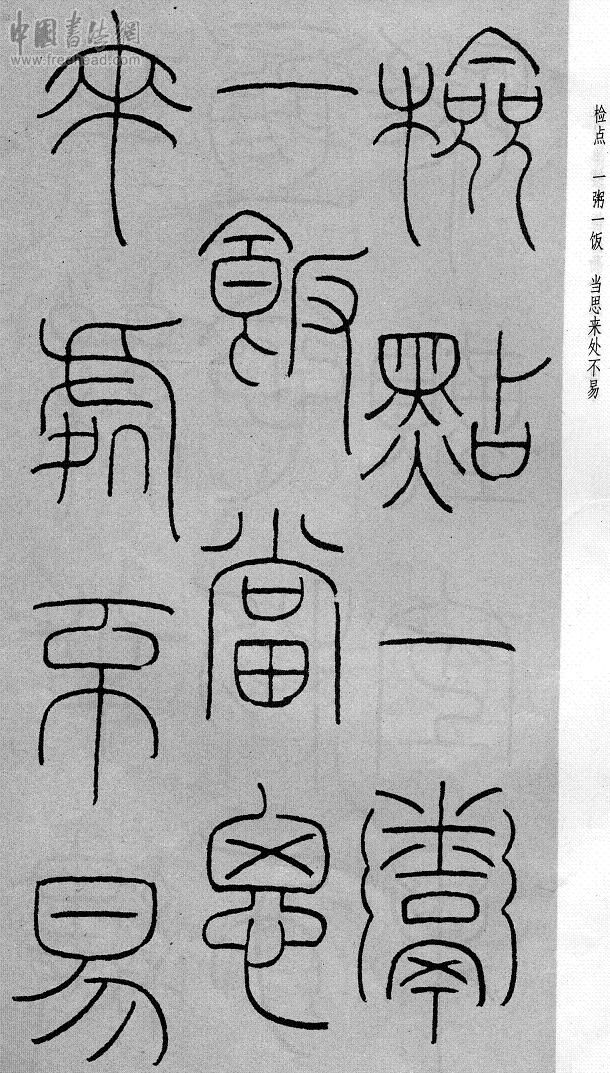 检点 一粥一饭 当思来处不易
檢點一鬻
一飯當思
來處不易
中国书法網
www.freehead.com